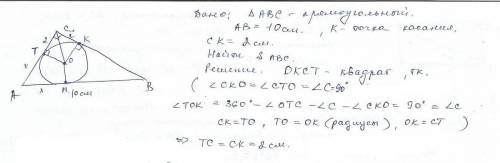 C
2
2
T
K
O
x
A
x
M
10см
B
Дано; ΔABC - прямоугольный.
AB = 10 см, K - точка касания.
CK = 2 см.
Найти S ABC.
Решение. OKCT - квадрат, т.к.
( ∠CKO = ∠CTO = ∠C = 90°
∠TOK = 360° - ∠OTC - ∠C - ∠CKO = 90° = ∠C
CK = TO, TO = OK (радиусы), OK = CT )
⇒ TC = CK = 2 см.